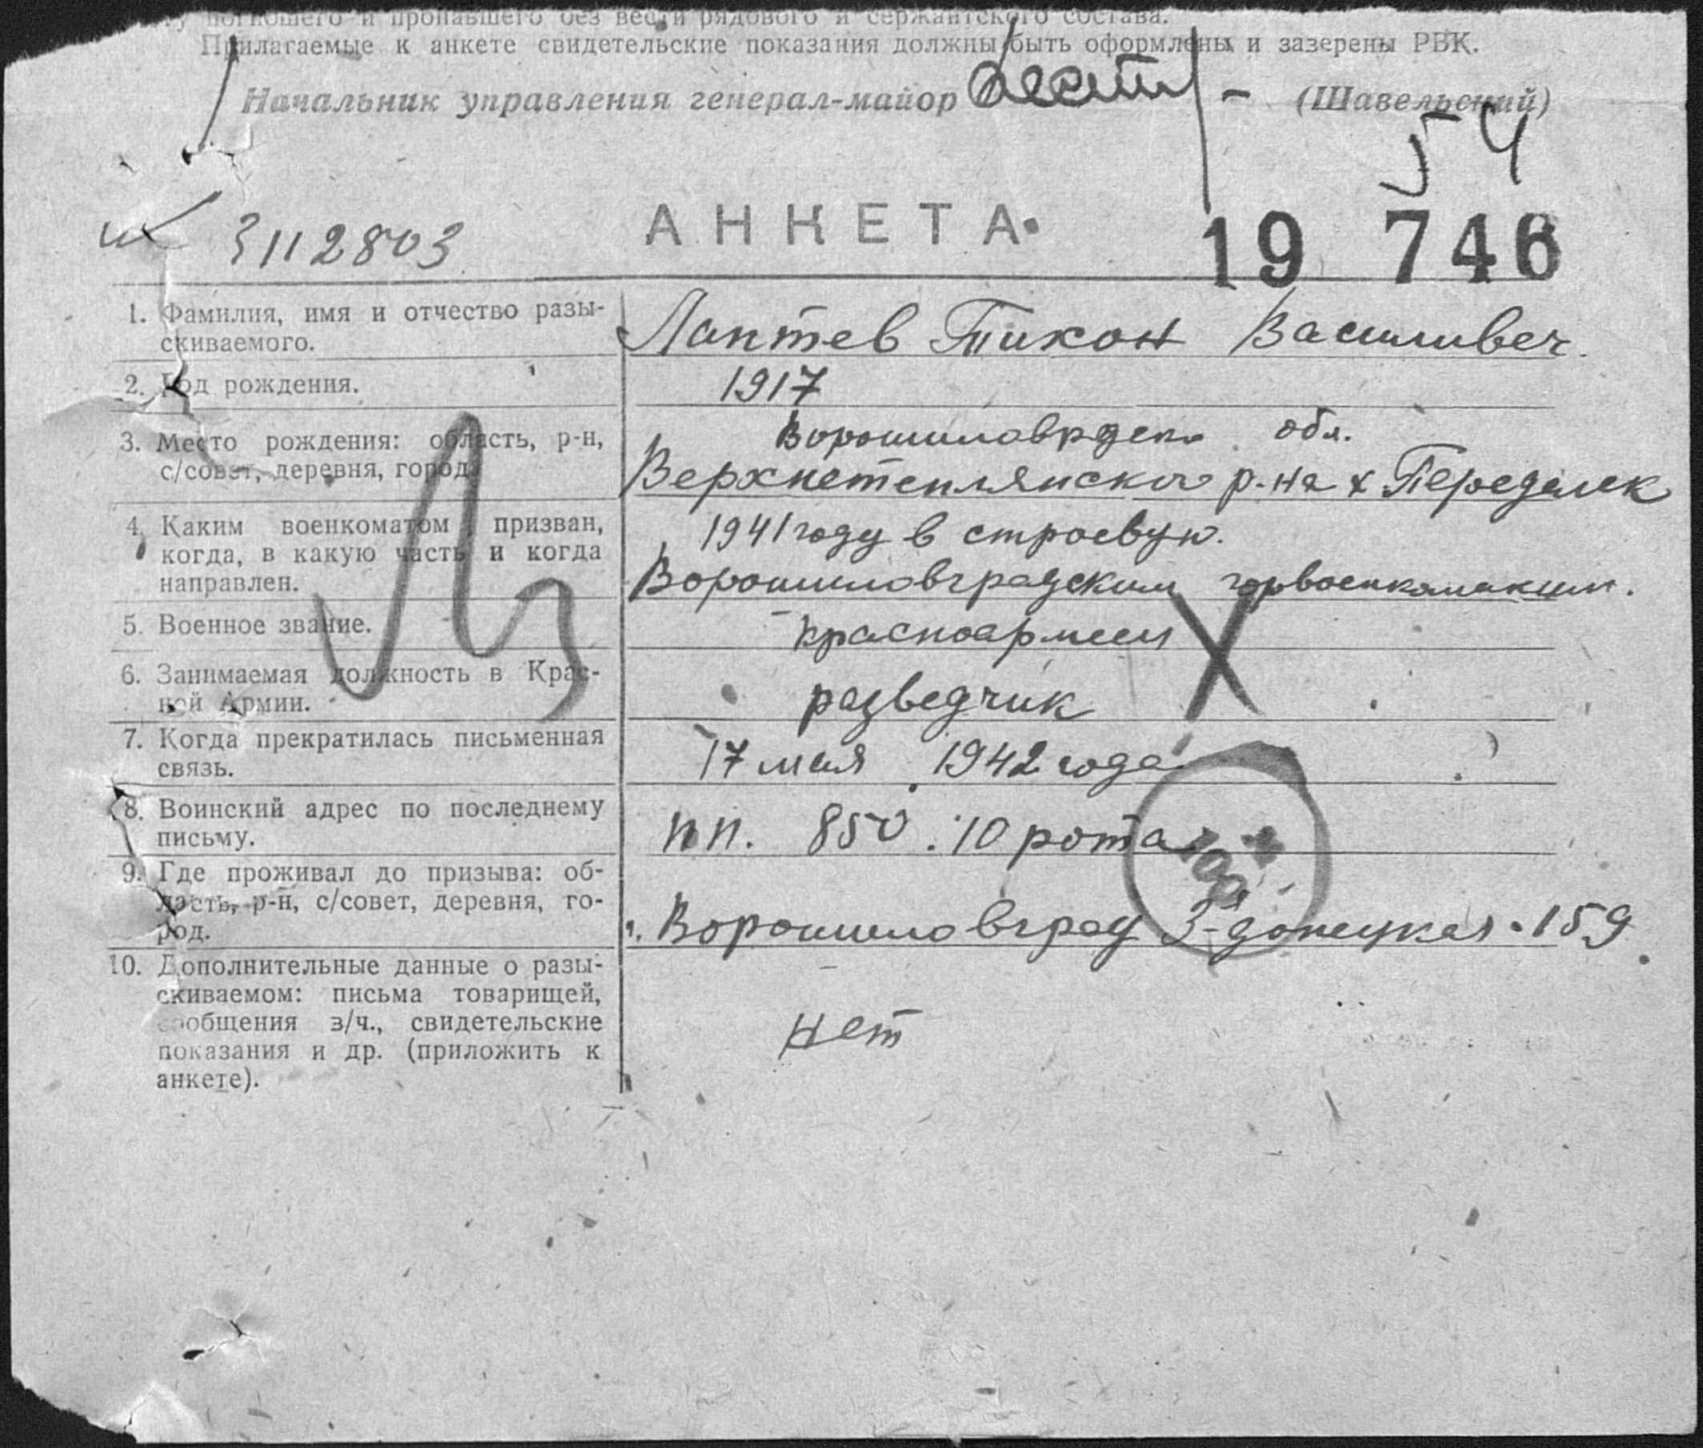 погибшего и пропавшего без вести рядового и сержантского состава.
Прилагаемые к анкете свидетельские показания должны быть оформлены и заверены РВК.
Начальник управления генерал-майор (Шавельский)
54
3112803
АНКЕТА.
19 746
1. Фамилия, имя и отчество разы-
скиваемого.
Лаптев Тихон Василивеч
2. Год рождения.
1917
3. Место рождения: область, р-н,
с/совет, деревня, город.
обл.
Верхнетеплянского р-на х Переделск
4. Каким военкоматом призван,
когда, в какую часть и когда
направлен.
1941 году в строевую.
Ворошиловградским
5. Военное звание.
красноармеец
6. Занимаемая должность в Крас-
ной Армии.
разведчик
7. Когда прекратилась письменная
связь.
17 мая 1942 года
8. Воинский адрес по последнему
письму.
пп. 850. 10 рота
9. Где проживал до призыва: об-
ласть, р-н, с/совет, деревня, го-
род.
Ворошиловград 3-я донецкая 159
10. Дополнительные данные о разы-
скиваемом: письма товарищей,
сообщения в/ч., свидетельские
показания и др. (приложить к
анкете).
нет